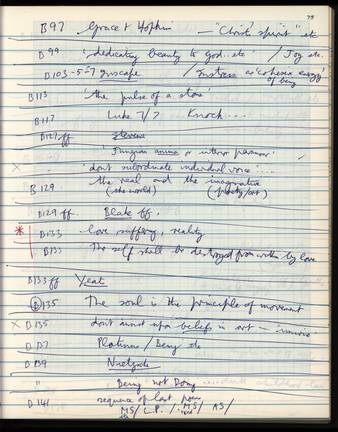 79
B97 Grace & Hopkins — "Christ's spirit" etc
B99 'dedicating beauty to God. etc' / Joy etc.
B103-5-7 Inscape / Instress as 'cohesive energy'
of being
B113 'the pulse of a stone'
B117 Luke 7/7 Knock....
B127 ff Stevens
'Jungian anima or interior paramour'
X 'don't subordinate individual voice....
B129 the real and the imaginative
(the world) (poetry/art)
B129 ff Blake ff.
* B133 love suffering, reality
B133 The self shall be destroyed from within by love
B133 ff Yeats
B135 The soul is the principle of movement
X B135 don't insist upon beliefs in art —
B137 Platinus / Being etc
B139 Nietzsche
" Being not Doing
B141 sequence of last poem
MS / L.P. / MS / AS /